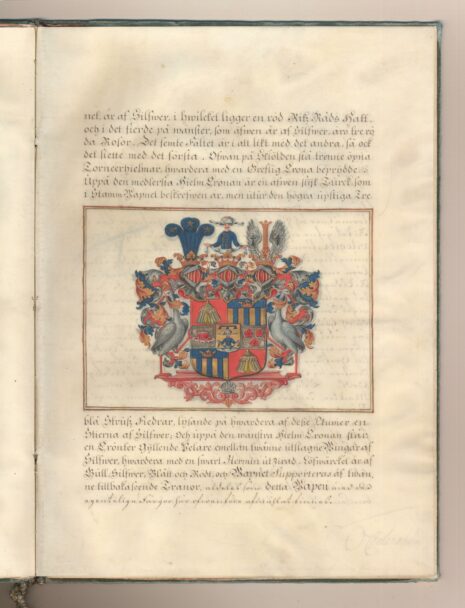 net, är af Silfwer, i hwilcket ligger en röd Rikz Råds Hatt,
och i det fierde på wänster, som äfwen är af Silfwer, äro tre rö
da Rosor. Det femte Fältet är i alt likt med det andra, så ock
det siette med det första. Ofwan på Skiölden stå trenne öpna
Torneerhielmar, hwardera med en Greflig Crona beprydde.
Uppå den medlersta Hielm Cronan är en äfwen slijk Turck, som
i Stamm Wapnet beskrefwen är, men utur den högra upstiga Tre
blå Strutz Fiedrar, lysande på hwardera af deße Plumer en
Stierna af Silfwer; Och uppå den wänstra Hielm Cronan står
en Crönter Gyllende Pelare emellan twänne utslagne Wingar af
Silfwer, hwardera med en swart Hermin ut Zirad. Löfwärcket är af
Gull, Silfwer, Blått och Rödt, och Wapnet Supporteras af twän,
ne tillbakaseende Tranor, aldeles som detta Wapen med deß
egentelige färgor här ofwanföre afmåhlat finnes.